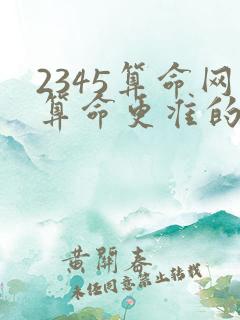 2345算命网
算命更准的
黄開春
未经同意禁止转载